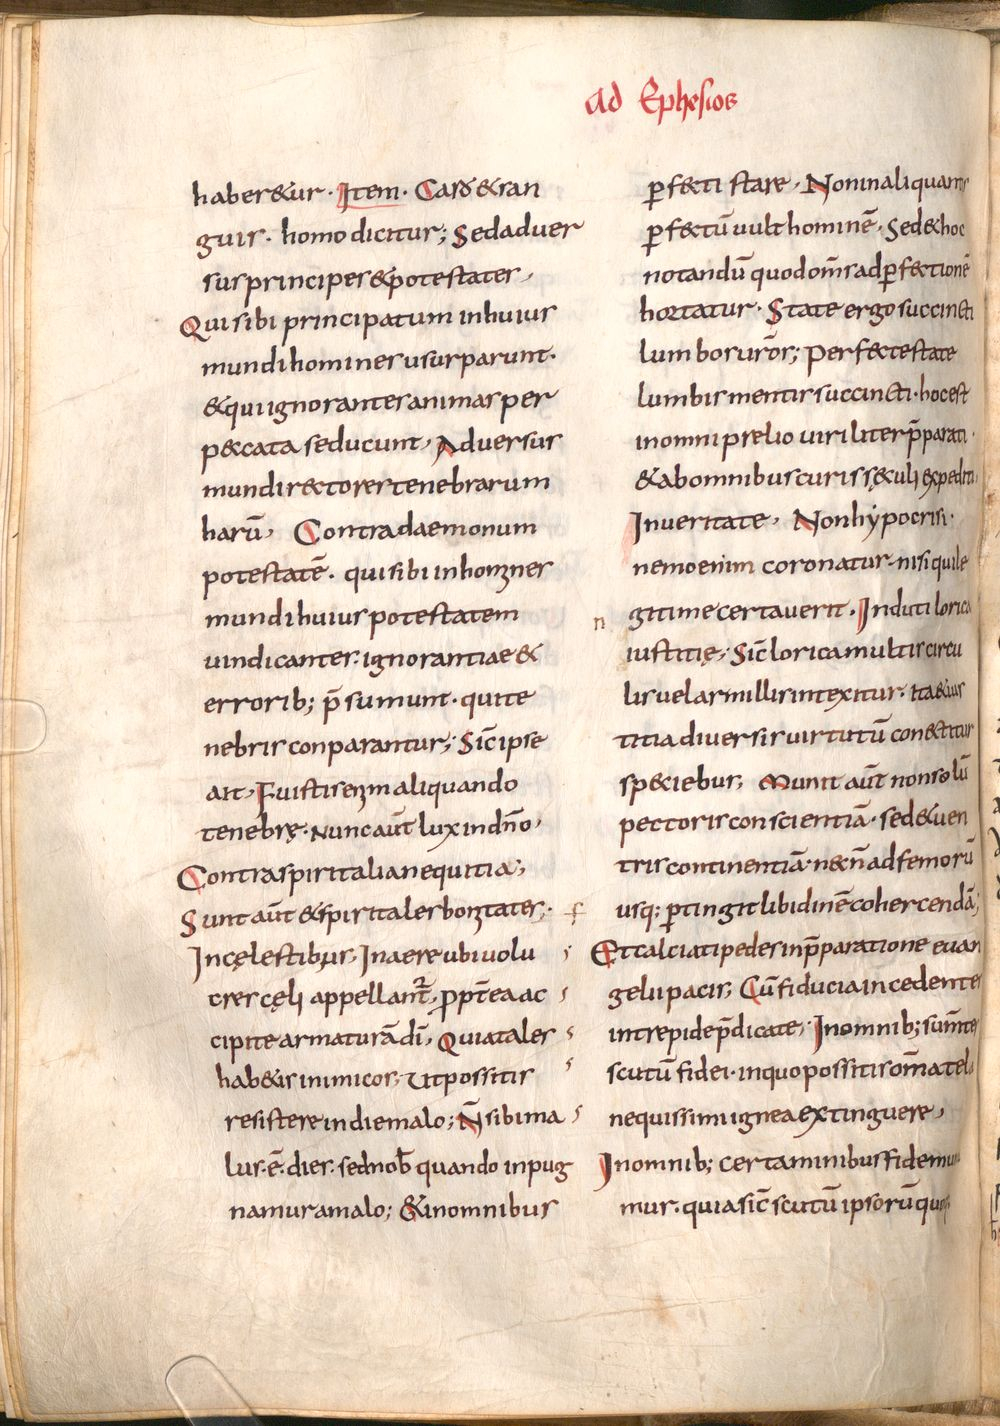 ad Ephesios
haber&ur · Item · Caro & san
guis · homo dicitur; Sed aduer
sus principes & potestates,
Qui sibi principatum in huius
mundi homines usurparunt.
& qui ignorantes animas per
peccata seducunt, Aduersus
mundi rectores tenebrarum
harū, Contra daemonum
potestatē. qui sibi in homines
mundi huius potestatem
uindicantes. ignorantiae &
errorib; p̄sumunt. qui te
nebris conparantur; Sic̄ ipse
ait, Fuistis enim aliquando
tenebrę. Nunc aūt lux in dn̄o,
Contra spiritalia nequitia;
Sunt aūt & spiritales bonitates;
In cęlestibus, In aere ubi uolu
cres cęli appellant̄, ꝓpt̄ea ac
cipite armaturā dī, Quia tales
hab&is inimicos, Ut possitis
resistere in die malo; N̄ sibi ma
lus .ē. dies. sed nob̄ quando inpug
namur a malo; & in omnibus
ꝑfecti stare, Non in aliquantis
ꝑfectū uult hominē. Sed & hoc
notandū quod om̄s ad ꝑfectionē
hortatur. State ergo succincti
lumbos ur̄os; Perfecte state
lumbis mentis succincti. hoc est
in omni prelio uiriliter p̄parati.
& ab omnibus curis sęculi expediti
In ueritate, Non hypocrisi.
nemo enim coronatur. nisi qui le
n
gitime certauerit. Induti lorica
iustitię, Sic̄ lorica multis circu
lis uel armillis intexitur. ita & ius
titia diuersis uirtutū conectitur
speciebus, Munit aūt non solū
pectoris conscientiā. sed & uen
tris continentiā. ne & n̄ ad femorū
usq; ꝑtingit libidinē cohercendā;
Et calciati pedes in p̄paratione euan
gelii pacis; Cū fiducia incedentes
intrepide p̄dicate, In omnib; sum̄tes
scutū fidei. in quo possitis om̄a tela
nequissimi ignea extinguere,
In omnib; certaminibus fide muni
mur. quia sic̄ scutū ipsorū